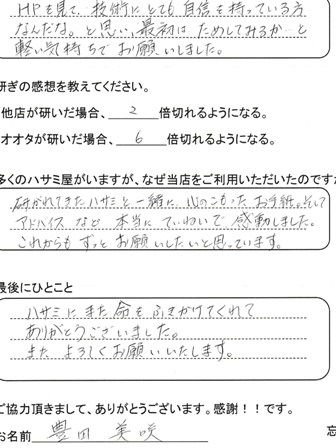 HPを見て、技術にとても自信を持っている方
なんだな。と思い、最初は ためしてみるかーと
軽い気持ちで お願いしました。
研ぎの感想を教えてください。
他店が研いだ場合、 2 倍切れるようになる。
オオタが研いだ場合、 6 倍切れるようになる。
多くのハサミ屋がいますが、なぜ当店をご利用いただいたのです
研がれてきたハサミと一緒に、心のこもった お手紙。そして
アドバイスなど 本当に ていねいで 感動しました。
これからも ずっと お願いしたいと思っています。
最後にひとこと
ハサミに また 命を ふきかけてくれて
ありがとうございました。
また よろしくお願いいたします。
ご協力頂きまして、ありがとうございます。感謝！！です。
お名前 豊田 美咲